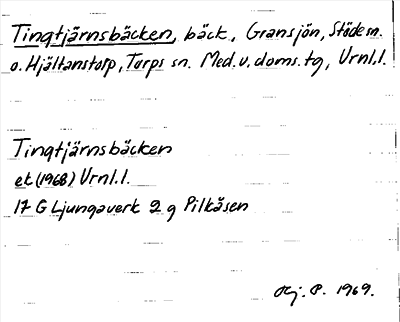 Tingtjärnsbäcken, bäck, Gransjön, Stöde sn.
o. Hjältanstorp, Torps sn. Med. v. doms. tg, Urnl.l.
Tingtjärnsbäcken
ek (1968) Urnl.l.
17 G Ljungaverk 2 g Pilkåsen
P. 1969.